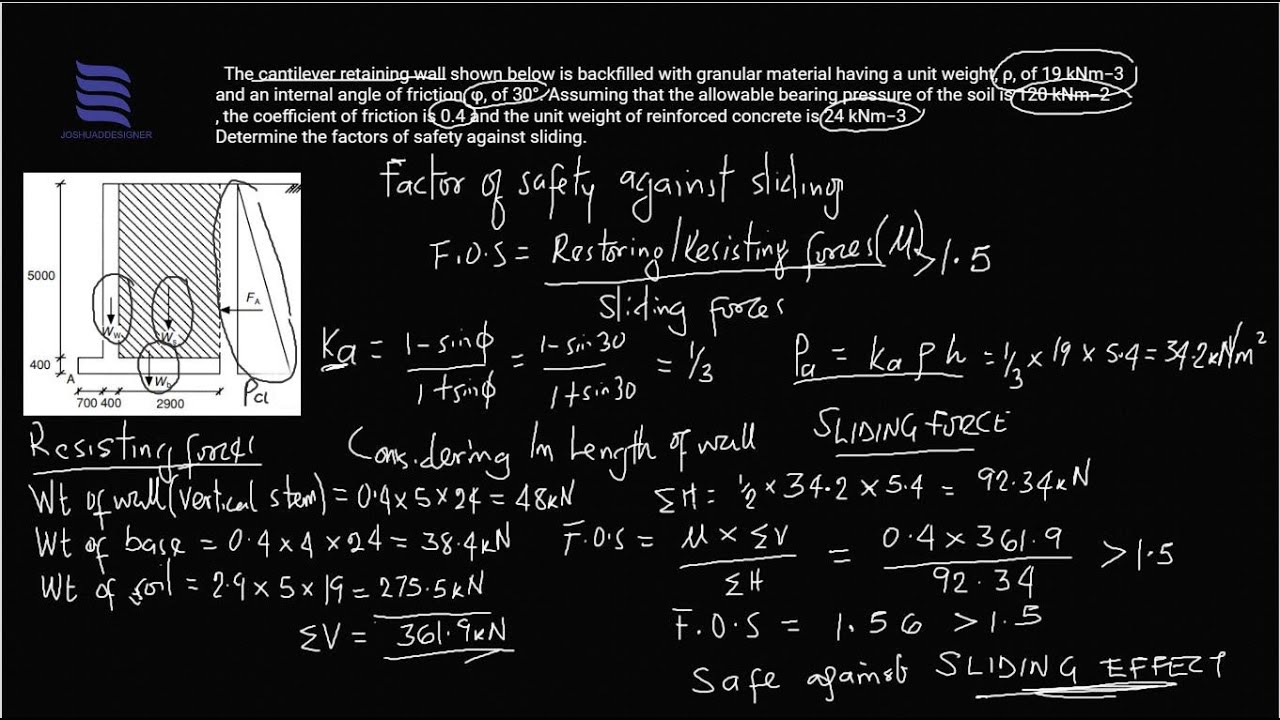 The cantilever retaining wall shown below is backfilled with granular material having a unit weight, ρ, of 19 kNm−3
and an internal angle of friction, φ, of 30°. Assuming that the allowable bearing pressure of the soil is 120 kNm−2
, the coefficient of friction is 0.4 and the unit weight of reinforced concrete is 24 kNm−3
Determine the factors of safety against sliding.
JOSHUADDESIGNER
Factor of safety against sliding
F.O.S = Restoring/Resisting forces (μ) > 1.5
Sliding forces
5000
400
A
700 400 2900
Ww
Ws
Wb
FA
Pa
Ka = 1-sinϕ / 1+sinϕ = 1-sin30 / 1+sin30 = 1/3
Pa = ka ρ h = 1/3 × 19 × 5.4 = 34.2kN/m²
Resisting forces
Considering 1m Length of wall
SLIDING FORCE
Wt of wall (vertical stem) = 0.4 × 5 × 24 = 48kN
Wt of base = 0.4 × 4 × 24 = 38.4kN
Wt of soil = 2.9 × 5 × 19 = 275.5kN
ΣV = 361.9kN
ΣH = 1/2 × 34.2 × 5.4 = 92.34kN
F.O.S = μ × ΣV / ΣH = 0.4 × 361.9 / 92.34 > 1.5
F.O.S = 1.56 > 1.5
Safe against SLIDING EFFECT